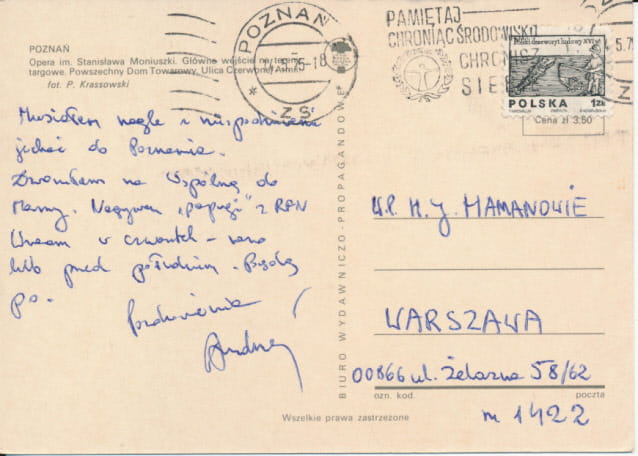 POZNAŃ
Opera im. Stanisława Moniuszki. Główne wejście na tereny
targowe. Powszechny Dom Towarowy. Ulica Czerwonej Armii
fot. P. Krassowski
POZNAŃ
4.5.75-18
PAMIĘTAJ
CHRONIĄC ŚRODOWISKO
CHRONISZ
SIE
POLSKA
1zł
Cena zł 3,50
Musiałem nagle i niespodzianie
jechać do Poznania.
Dzwoniłem na Wspólną do
Mamy. Nagrywam „papugi” z
Wracam w czwartek - rano
lub przed południem. Będę
po.
Pozdrowienia
Andrzej
BIURO WYDAWNICZO-PROPAGANDOWE
W.P. H. J. MAMANOWIE
WARSZAWA
00866 ul. Żelazna 58/62
ozn. kod. poczta
m 1422
Wszelkie prawa zastrzeżone